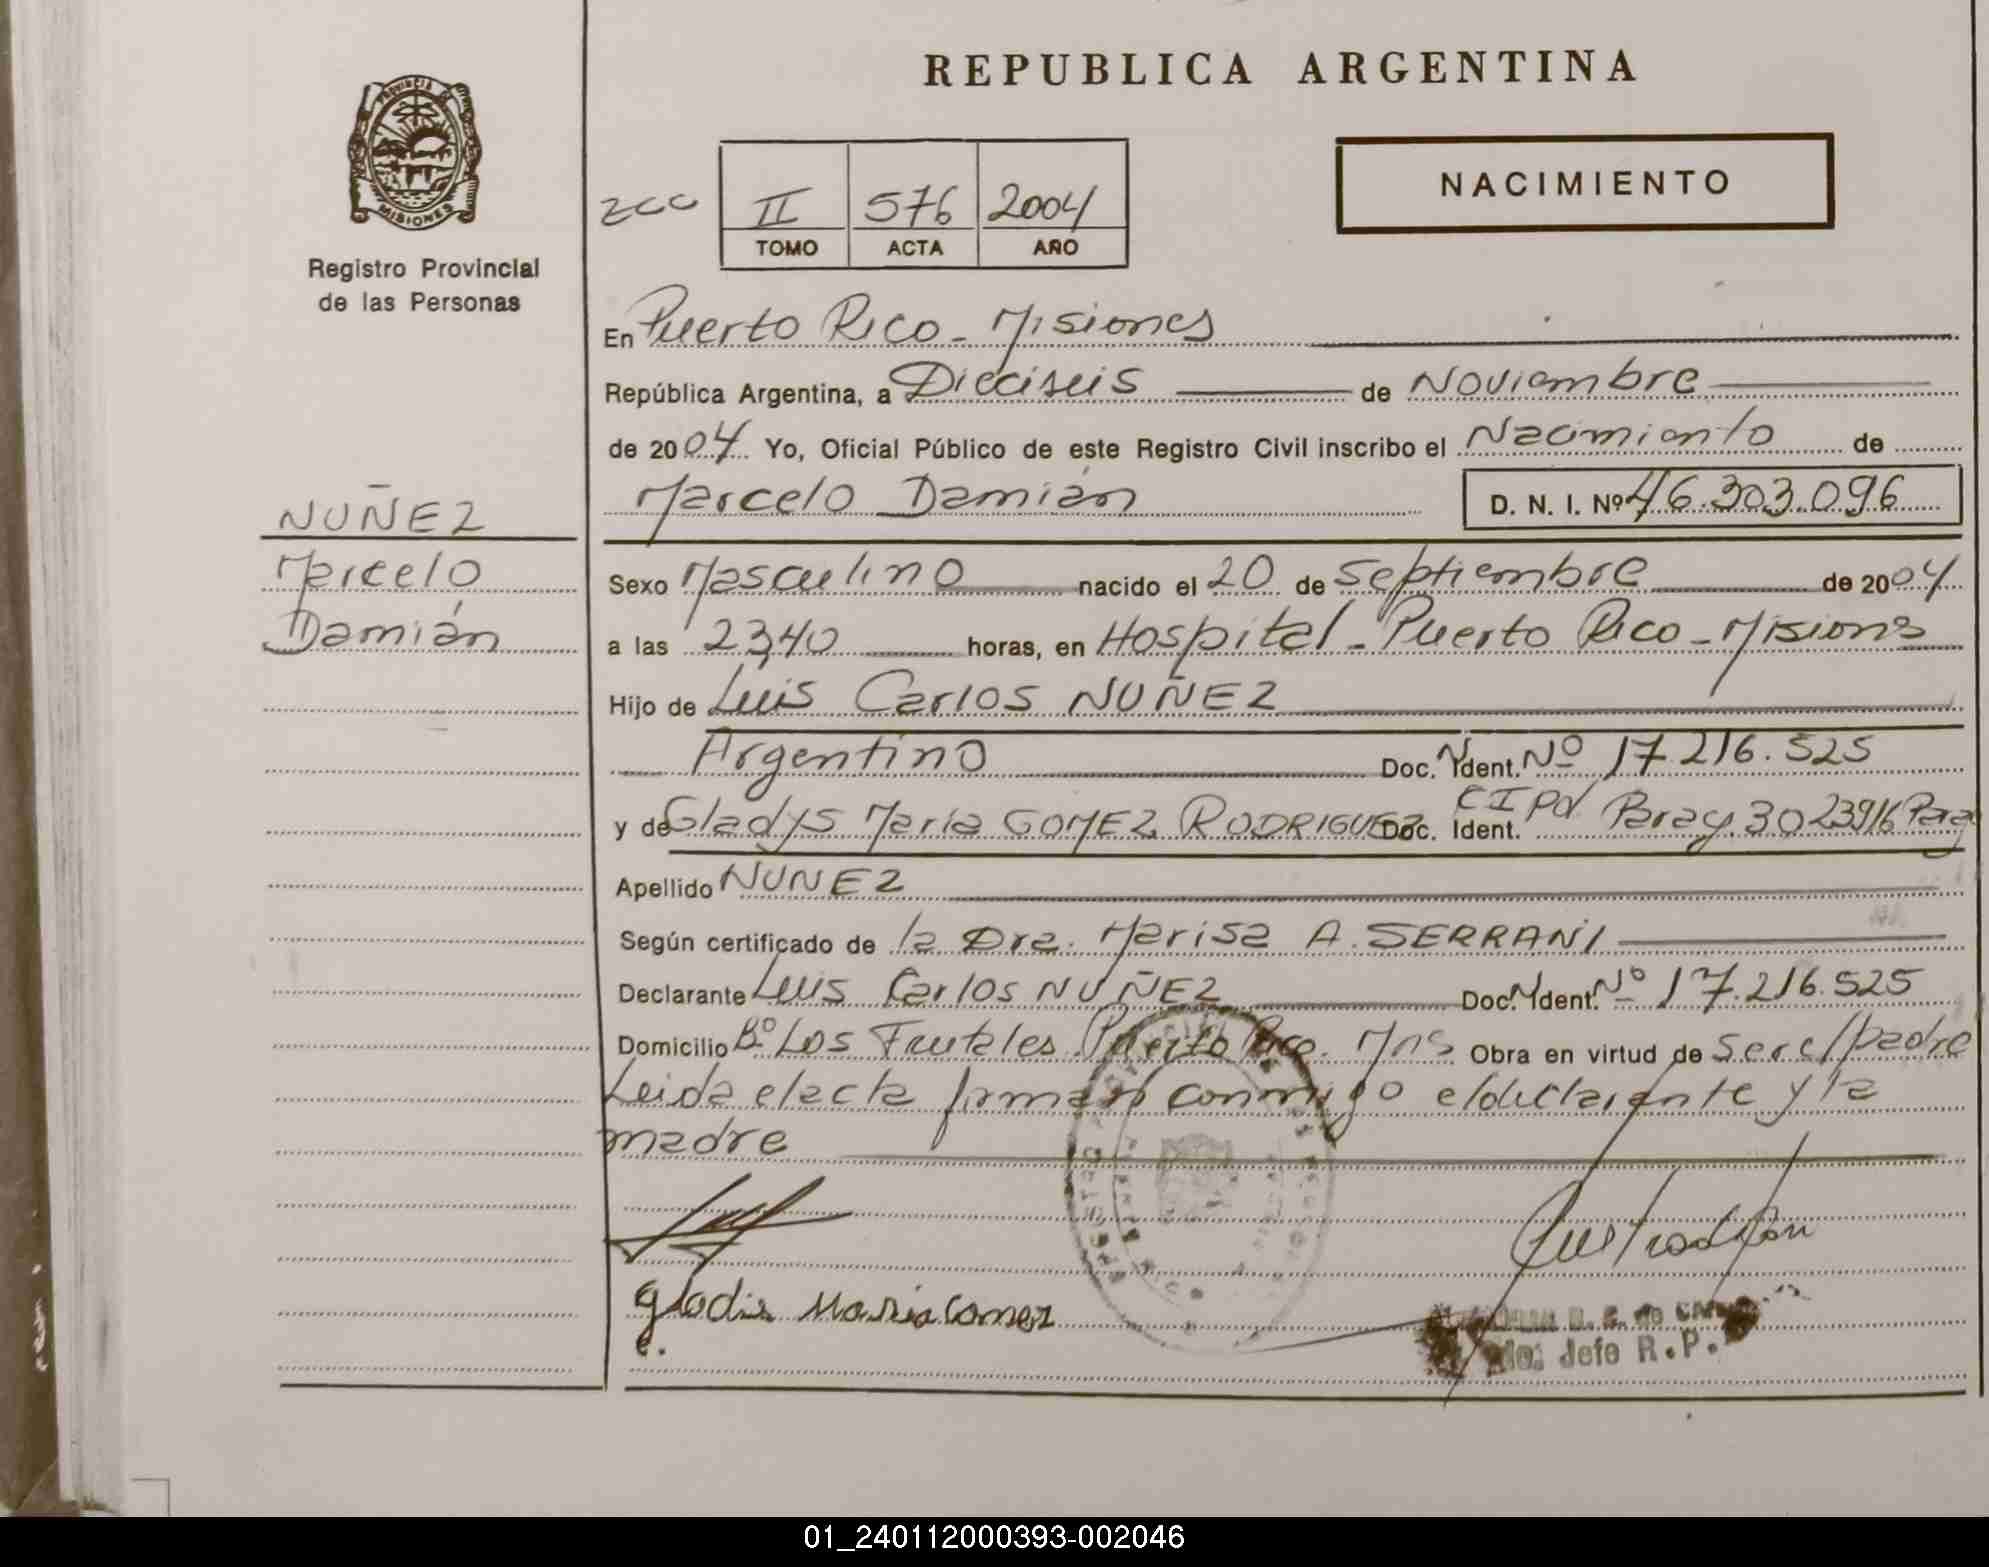 REPUBLICA ARGENTINA
PROVINCIA DE
MISIONES
Registro Provincial
de las Personas
NACIMIENTO
II 576 2004
TOMO ACTA AÑO
En Puerto Rico - Misiones
República Argentina, a Dieciseis de Noviembre
de 2004 Yo, Oficial Público de este Registro Civil inscribo el Nacimiento de
Marcelo Damián D. N. I. Nº 46.303.096
NUÑEZ
Marcelo
Damián
Sexo Masculino nacido el 20 de Septiembre de 2004
a las 23,40 horas, en Hospital - Puerto Rico - Misiones
Hijo de Luis Carlos NUÑEZ
Argentino Doc. Ident. Nº 17.216.525
y de Gladys Maria GOMEZ RODRIGUEZ Doc. Ident. CI Pol Paray. 3023916 Para
Apellido NUNEZ
Según certificado de la Dra. Marisa A. SERRANI
Declarante Luis Carlos NUÑEZ Doc. Ident. Nº 17.216.525
Domicilio Bº Los Frutales Puerto Rico. Mns Obra en virtud de ser el padre
Leida el acta firman conmigo el declarante y la
madre
Gladis Maria Gomez
e.
Jefe R.P.
01_240112000393-002046